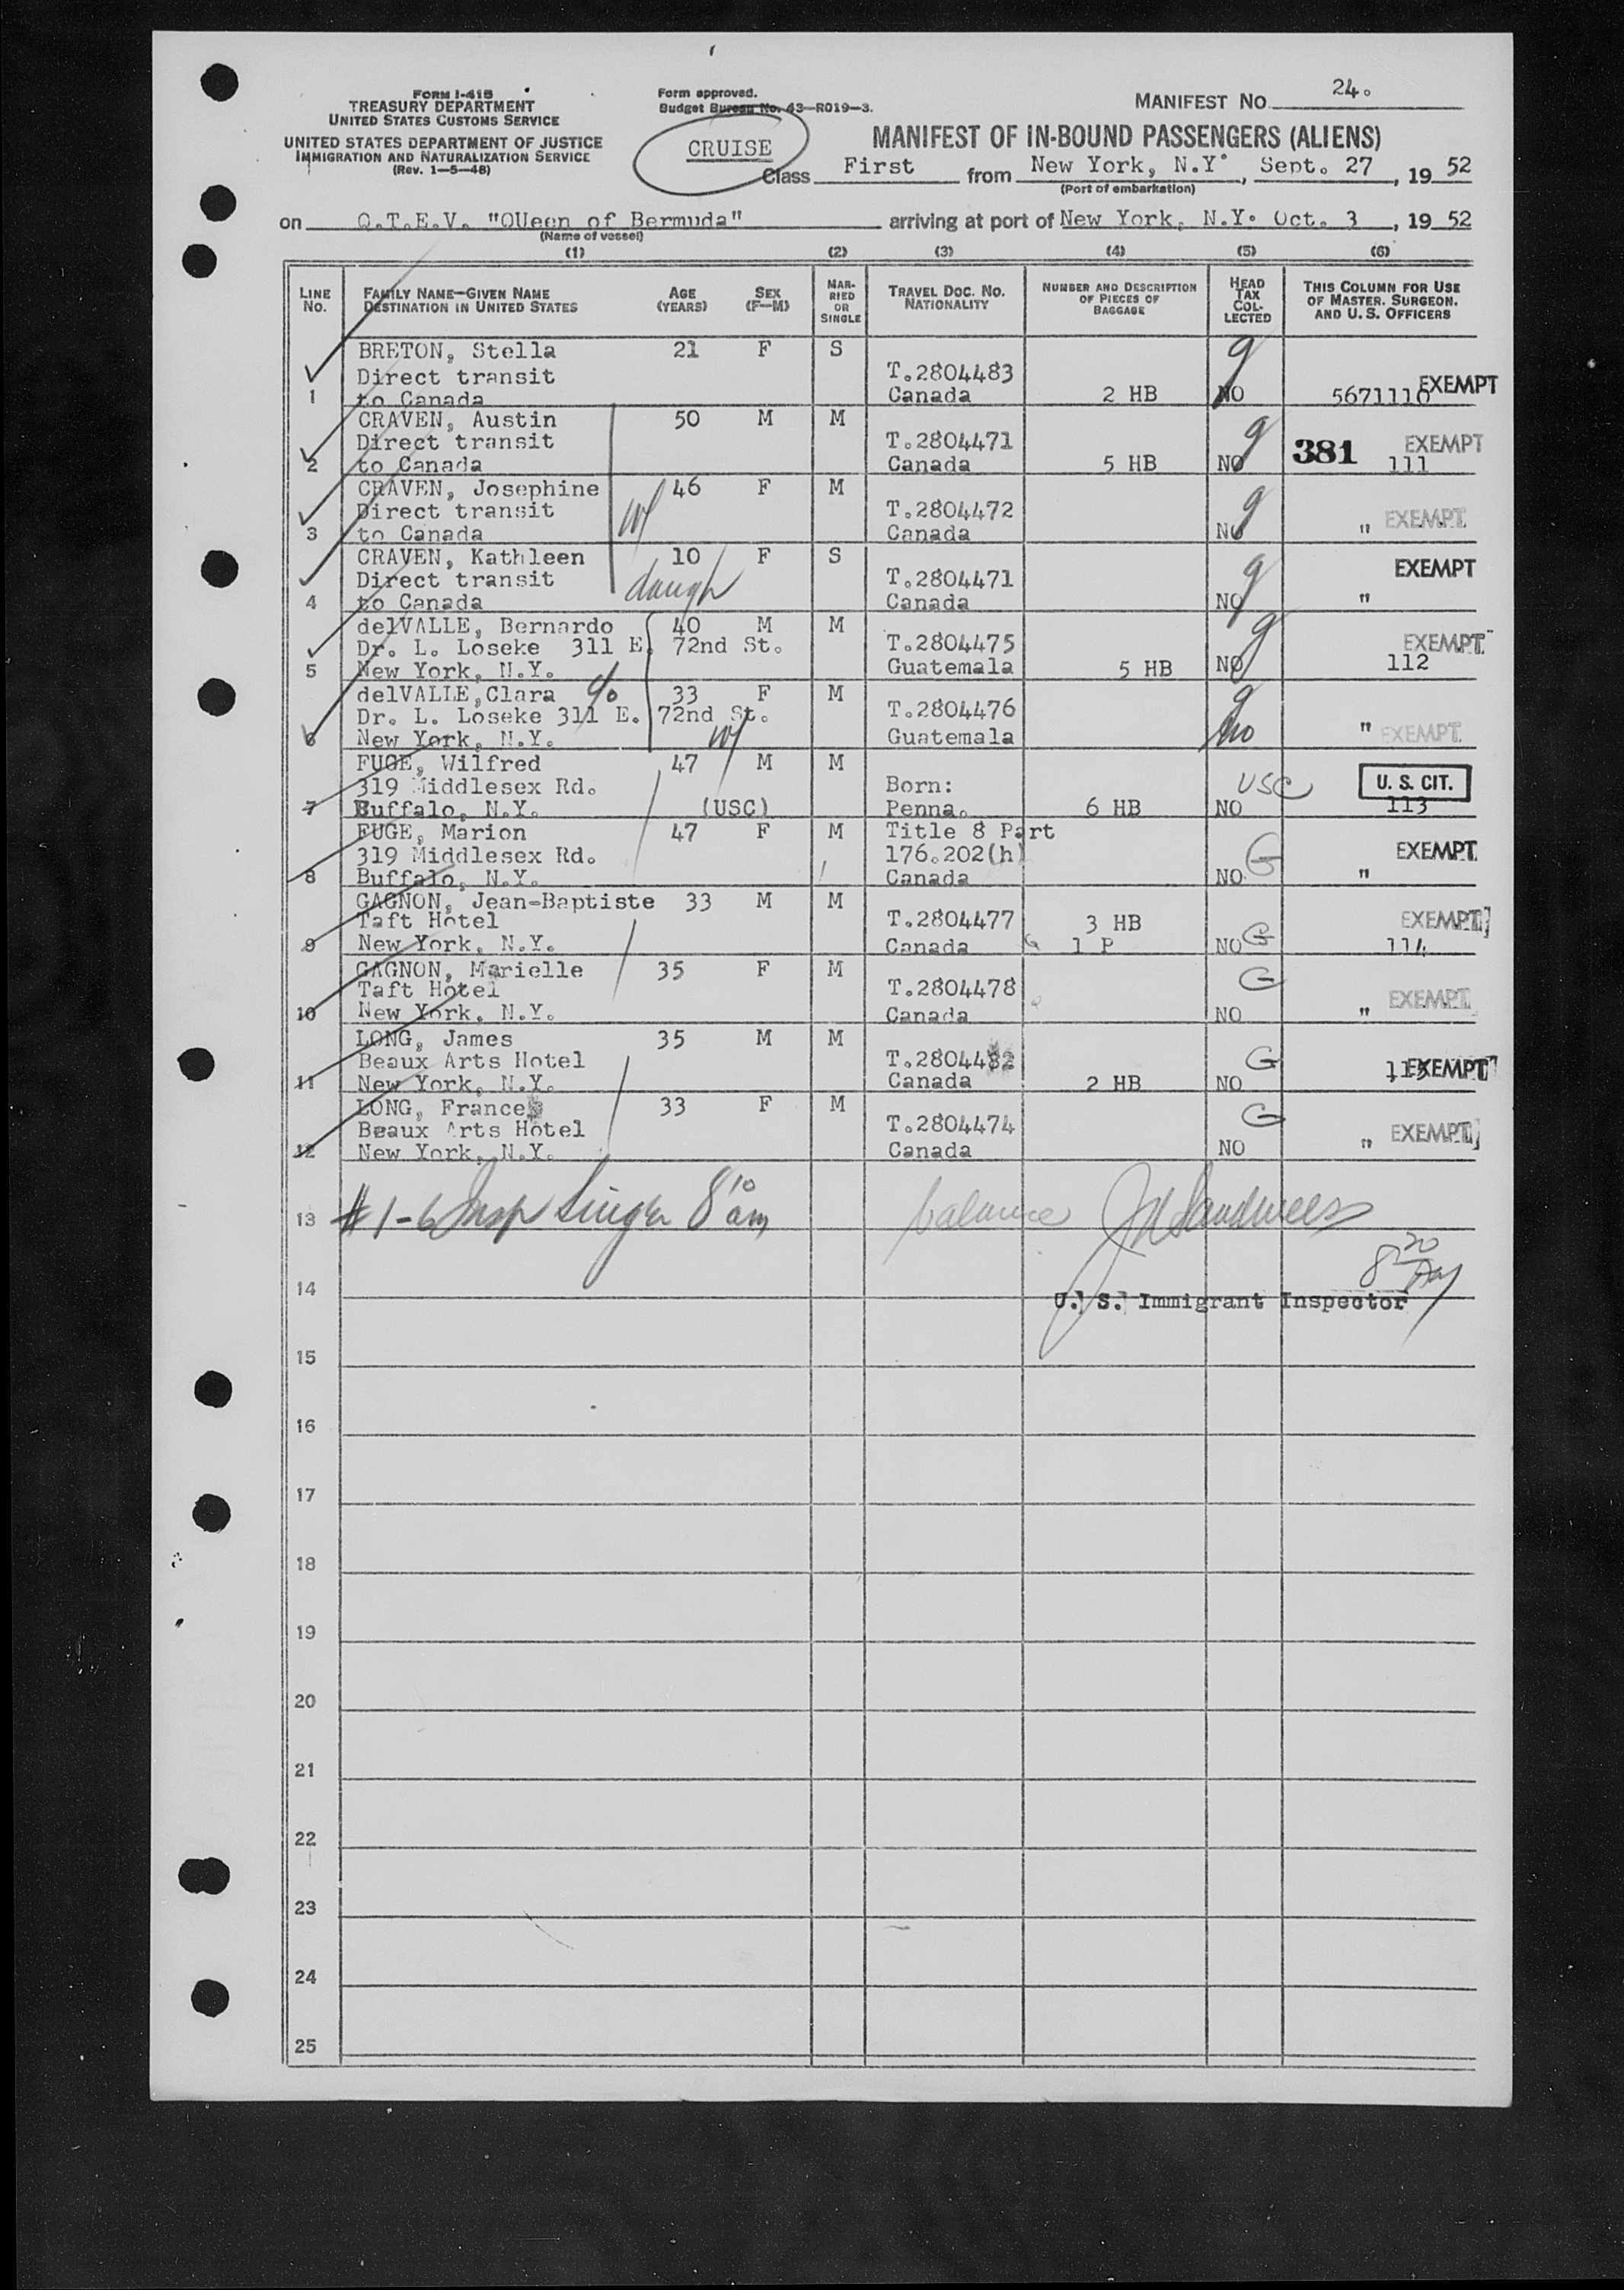 FORM I-415
TREASURY DEPARTMENT
UNITED STATES CUSTOMS SERVICE
UNITED STATES DEPARTMENT OF JUSTICE
IMMIGRATION AND NATURALIZATION SERVICE
(Rev. 1-5-48)
Form approved.
Budget Bureau No. 43-R019-3.
CRUISE
MANIFEST NO. 24.
MANIFEST OF IN-BOUND PASSENGERS (ALIENS)
Class First from New York, N.Y. , Sept. 27 , 19 52
(Port of embarkation)
on Q.T.E.V. "QUeen of Bermuda" arriving at port of New York, N.Y. Oct. 3 , 19 52
(Name of vessel)
(1) (2) (3) (4) (5) (6)
LINE NO. FAMILY NAME—GIVEN NAME DESTINATION IN UNITED STATES AGE (YEARS) SEX (F—M) MARRIED OR SINGLE TRAVEL DOC. NO. NATIONALITY NUMBER AND DESCRIPTION OF PIECES OF BAGGAGE HEAD TAX COLLECTED THIS COLUMN FOR USE OF MASTER, SURGEON, AND U. S. OFFICERS
BRETON, Stella 21 F S
Direct transit T.2804483
1 to Canada Canada 2 HB NO 5671110 EXEMPT
CRAVEN, Austin 50 M M
Direct transit T.2804471 381 EXEMPT
2 to Canada Canada 5 HB NO 111
CRAVEN, Josephine 46 F M
Direct transit W T.2804472 EXEMPT
3 to Canada Canada NO "
CRAVEN, Kathleen 10 F S EXEMPT
Direct transit daugh T.2804471
4 to Canada Canada NO "
delVALLE, Bernardo 40 M M
Dr. L. Loseke 311 E. 72nd St. T.2804475 EXEMPT
5 New York, N.Y. Guatemala 5 HB NO 112
delVALLE,Clara c/o 33 F M
Dr. L. Loseke 311 E. 72nd St. T.2804476
6 New York, N.Y. W Guatemala no " EXEMPT
FUGE, Wilfred 47 M M
319 Middlesex Rd. Born: USC U. S. CIT.
7 Buffalo, N.Y. (USC) Penna. 6 HB NO 113
FUGE, Marion 47 F M Title 8 Part
319 Middlesex Rd. 176.202(h) G EXEMPT
8 Buffalo, N.Y. Canada NO "
GAGNON, Jean-Baptiste 33 M M
Taft Hotel T.2804477 3 HB EXEMPT
9 New York, N.Y. Canada 1 P NO G 114
GAGNON, Marielle 35 F M G
Taft Hotel T.2804478 EXEMPT
10 New York, N.Y. Canada NO "
LONG, James 35 M M
Beaux Arts Hotel T.2804482 G EXEMPT
11 New York, N.Y. Canada 2 HB NO 115
LONG, Frances 33 F M G
Beaux Arts Hotel T.2804474 EXEMPT
12 New York, N.Y. Canada NO "
13 #1-6 Insp Singer 8 10 am balance
8 20
14 U. S. Immigrant Inspector
15
16
17
18
19
20
21
22
23
24
25